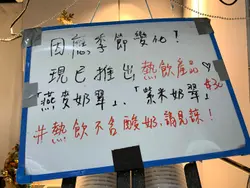 因應季節變化!
現已推出熱飲產品♡
「燕麥奶犟」、「紫米奶犟」
#熱飲不含酸奶,請見諒!